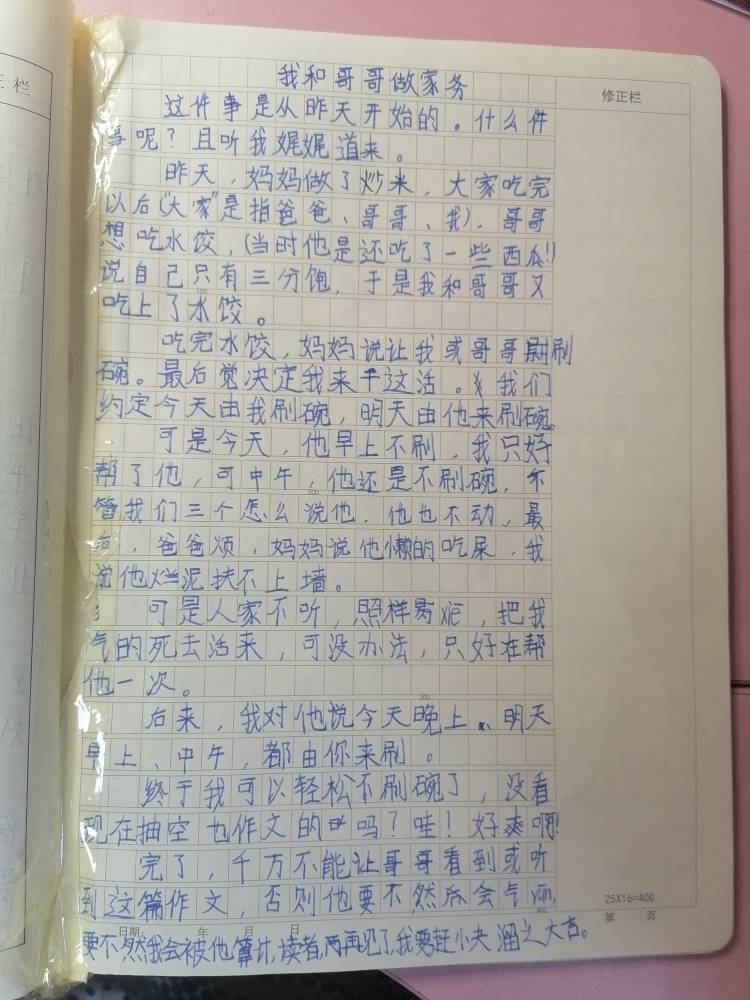 正栏
修正栏
我和哥哥做家务
这件事是从昨天开始的。什么件
事呢？且听我娓娓道来。
昨天，妈妈做了炒米，大家吃完
以后（“大家”是指爸爸、哥哥、我），哥哥
想吃水饺，（当时他是还吃了一些西瓜！）
说自己只有三分饱，于是我和哥哥又
吃上了水饺。
吃完水饺，妈妈说让我或哥哥刷
碗。最后觉决定我来干这活。我们
约定今天由我刷碗，明天由他来刷碗。
可是今天，他早上不刷，我只好
帮了他，可中午，他还是不刷碗，不
管我们三个怎么说他，他也不动，最
后，爸爸烦，妈妈说他懒的吃屎，我
说他烂泥扶不上墙。
可是人家不听，照样，把我
气的死去活来，可没办法，只好在帮
他一次。
后来，我对他说今天晚上、明天
早上、中午，都由你来刷。
终于我可以轻松不刷碗了，没看
现在抽空也作文的吗？哇！好爽啊！
完了，千万不能让哥哥看到或听
到这篇作文，否则他要不然后会气
要不然我会被他算计，读者，再见了，我要赶小夫溜之大吉。
100
200
300
25X16=400
第 页
日期： 年 月 日